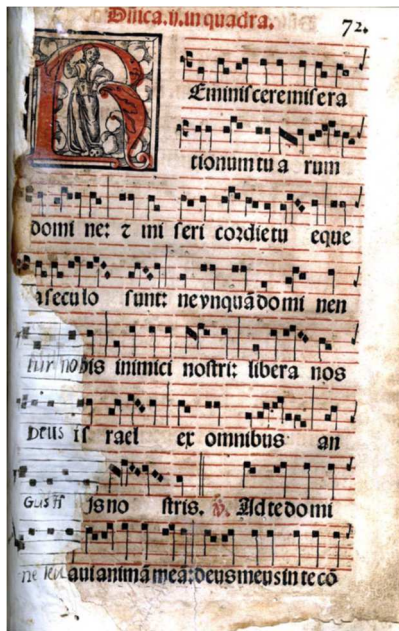 Dñica.ij.in quadra. 72.
Reminiscere misera
tionum tu a rum
domi ne: ⁊ mi seri cordie tu eque
a seculo sunt: ne vnquã do mi nen
tur nobis inimici nostri: libera nos
Deus is rael ex omnibus an
gustijs no stris. ℣. Ad te do mi
ne leuaui animã meã: deus meus in te cõ